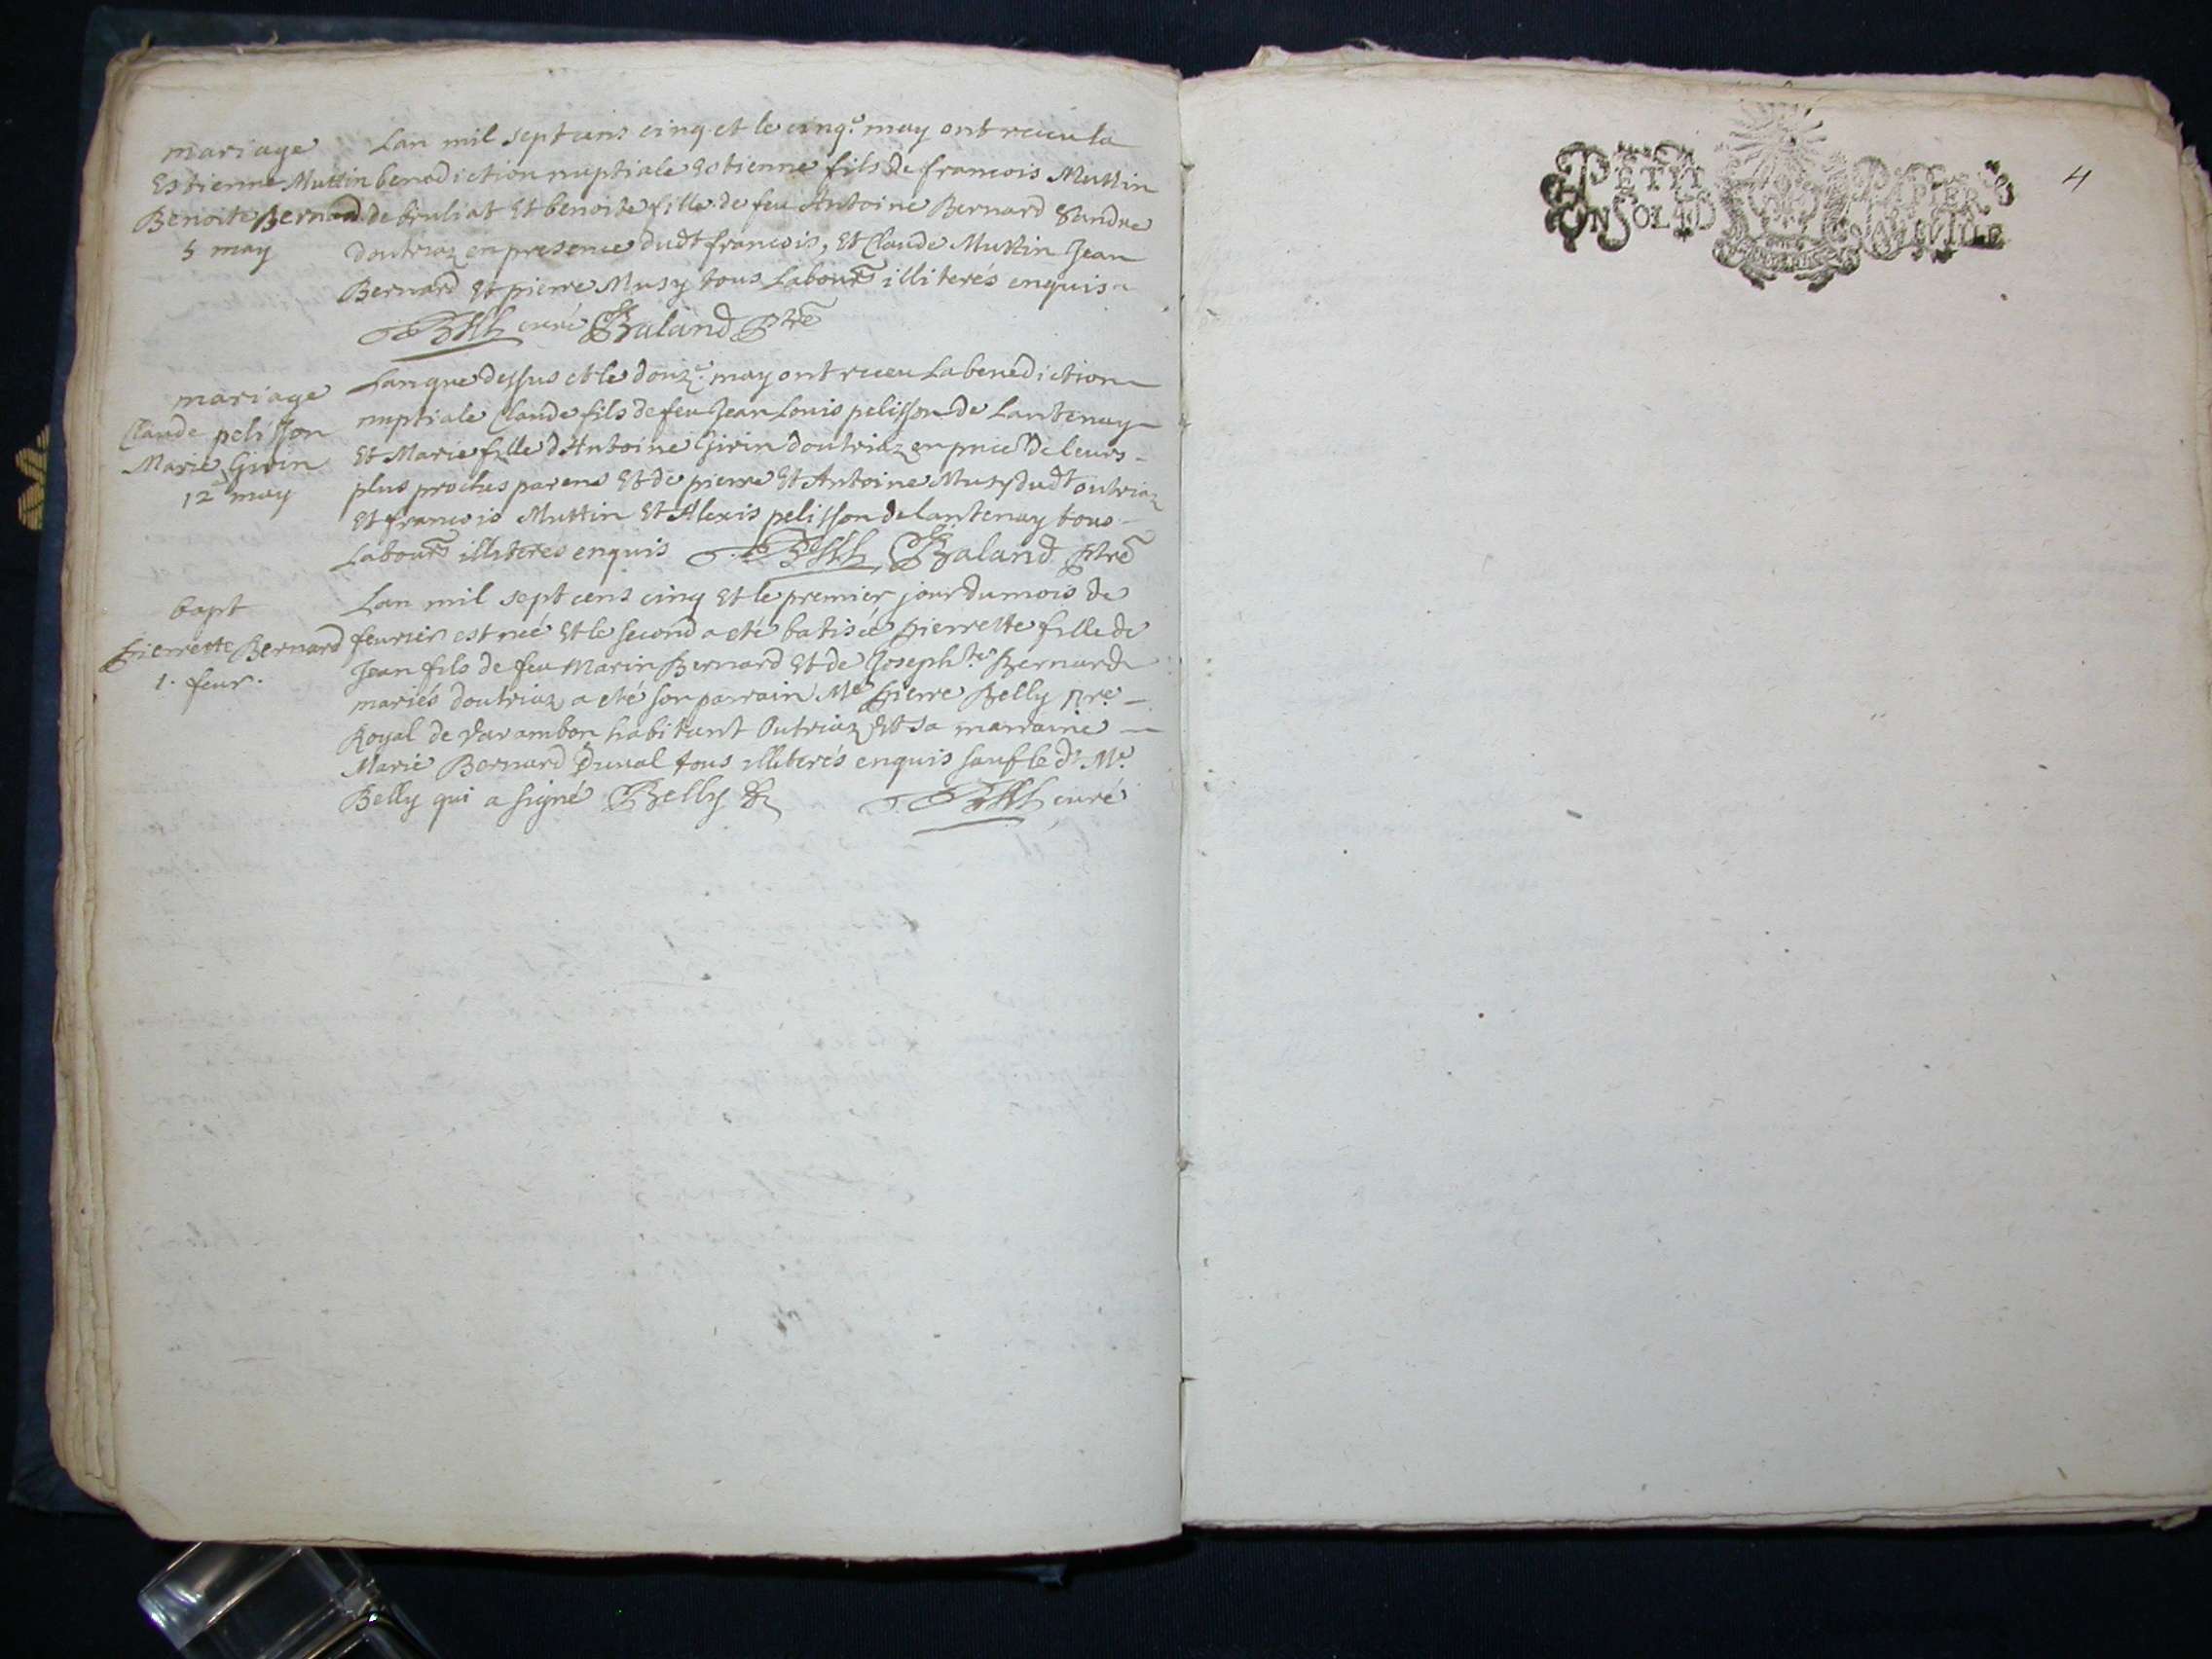 mariage
Estienne Muttin
Benoite Bernard
5 may
Lan mil sept cens cinq et le cinq.e may ont receu la
benediction nuptiale Estienne fils de francois Muttin
de bruliat Et benoite fille de feu Antoine Bernard
doutriaz en presence dudt francois, Et Claude Muttin Jean
Bernard Et pierre Musy tous Labours illiterés enquis
curé Baland Ptre
mariage
Claude pelisson
Marie Girin
12 may
Lan que dessus et le douz.e may ont receu La benediction
nuptiale Claude fils de feu Jean Louis pelisson de Lantenay
Et Marie fille d'Antoine Girin doutriaz en pnce de leurs
plus proches parens Et de pierre Et Antoine Musy dudt outriaz
Et francois Muttin Et Alexis pelisson de lantenay tous
Labours illiteres enquis Baland Ptre
bapt
pierrette Bernard
1. feur.
Lan mil sept cens cinq Et le premier jour du mois de
feurier est neé Et le second a eté batisée pierrette fille de
Jean fils de feu Marin Bernard Et de Joseph.te Bernard
mariés doutriaz a eté son parrain Me pierre Belly nre
Royal de Varambon habitant Outriaz Et sa marraine
Marie Bernard Duval tous illiterés enquis sauf le dt Me
Belly qui a signé Belly curé
PETIT PAPIER
UN SOL 4 D LA FEUILLE
4